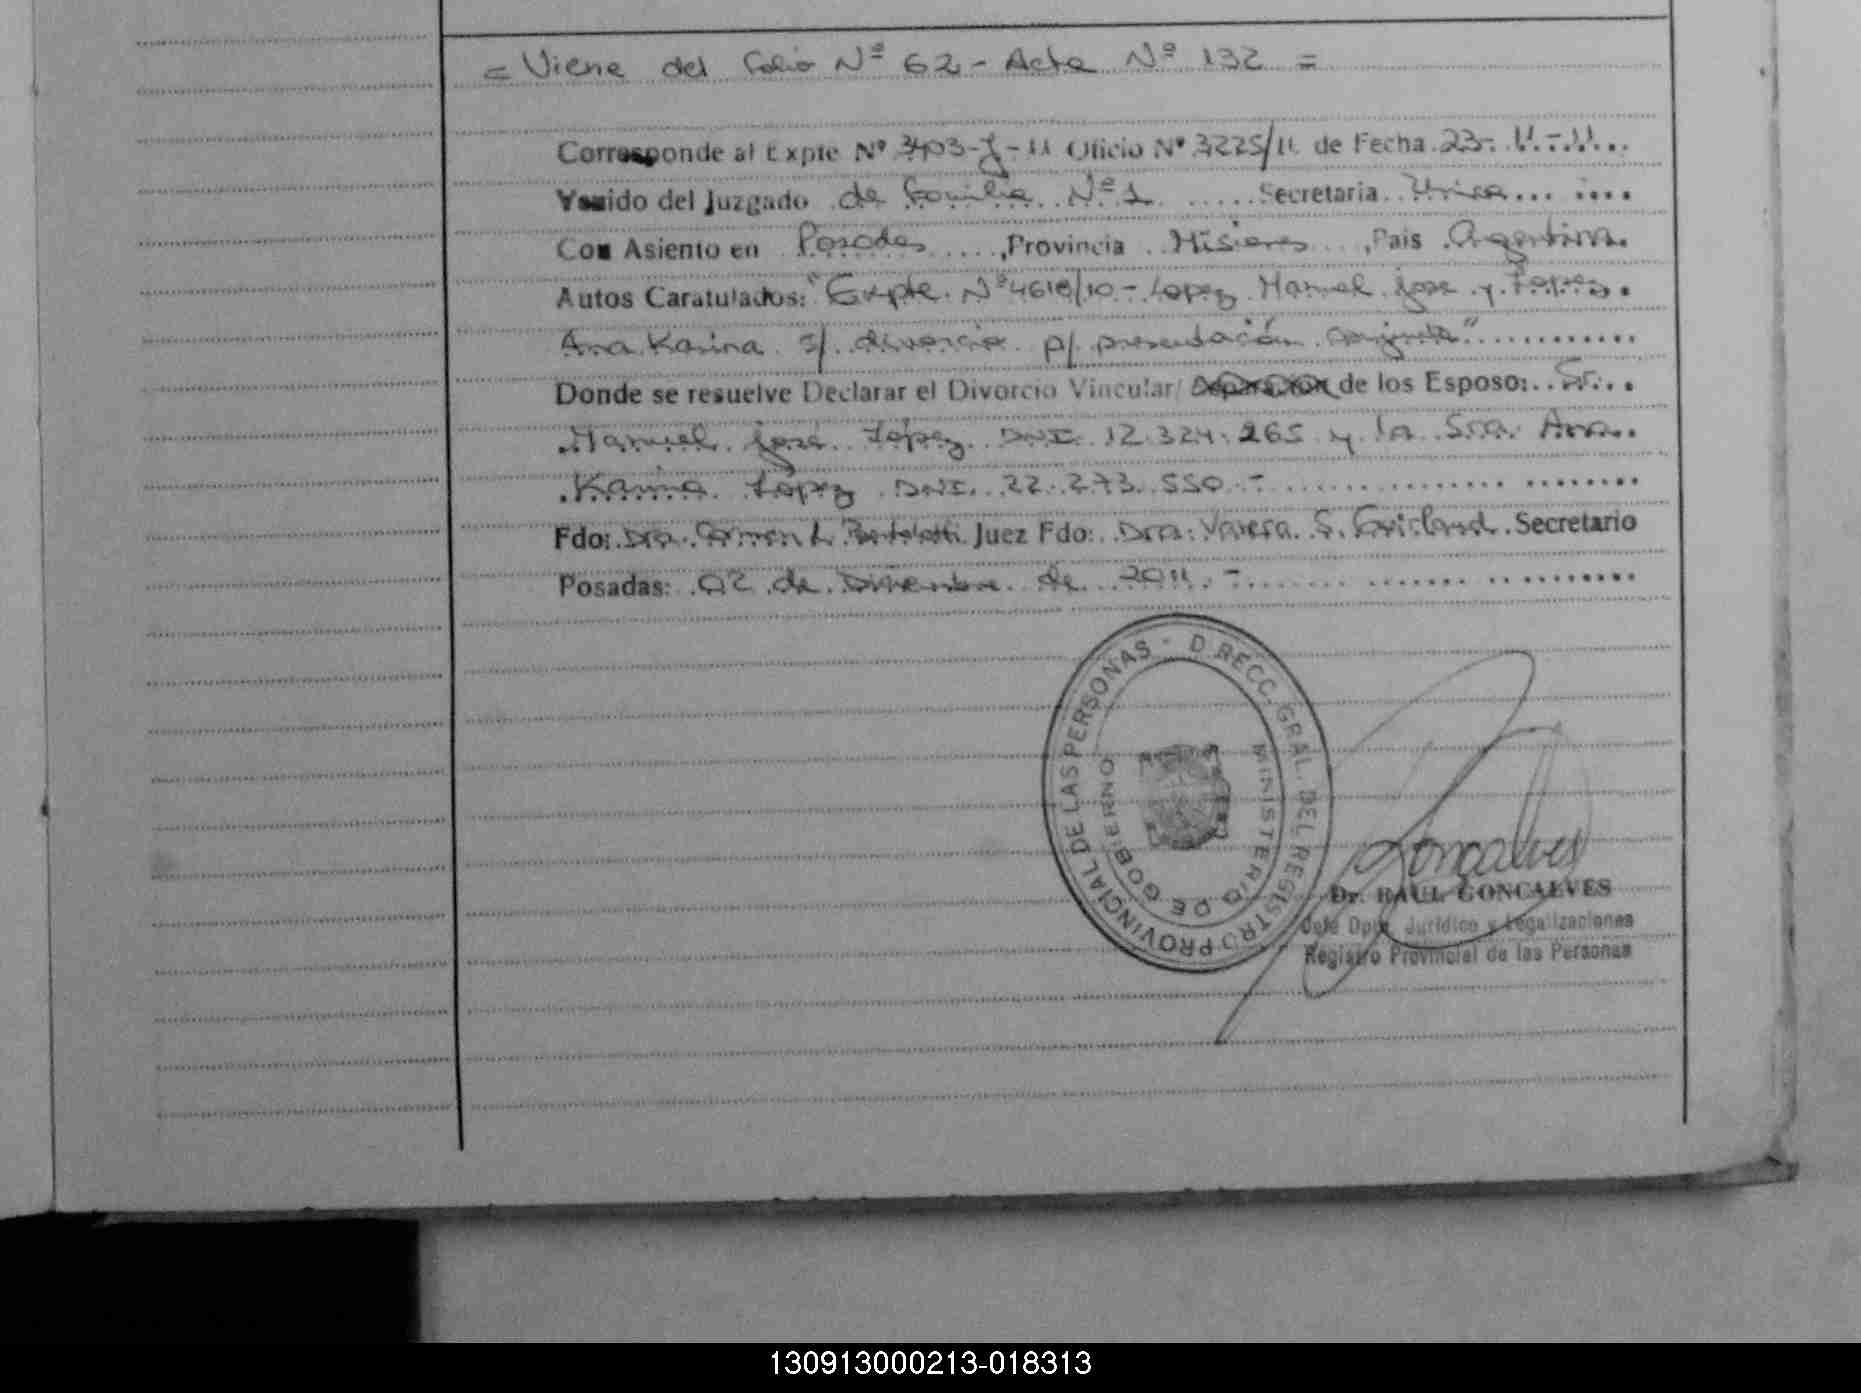 = Viene del folio Nº 62 - Acta Nº 132 =
Corresponde al Expte Nº 3403-J-11 Oficio Nº 3225/11 de Fecha 23-11-11
Venido del Juzgado de Familia Nº 1 Secretaria Unica
Con Asiento en Posadas, Provincia Misiones, Pais Argentina.
Autos Caratulados: "Expte. Nº 4618/10 - Lopez Manuel Jose y Lopez
Ana Karina s/ divorcio p/ presentación conjunta"
Donde se resuelve Declarar el Divorcio Vincular/ Separacion de los Esposo: Sr.
Manuel José López DNI. 12.324.265 y la Sra. Ana
Karina López DNI. 22.273.550 -
Fdo: Dra. Carmen L. Bertolotti Juez Fdo: Dra. S. Secretario
Posadas: 02 de Diciembre de 2011 -
DIRECC. GRAL. DEL REGISTRO PROVINCIAL DE LAS PERSONAS -
MINISTERIO DE GOBIERNO
Goncalves
Dr. RAUL GONCALVES
Jefe Dpto. Jurídico y Legalizaciones
Registro Provincial de las Personas
130913000213-018313